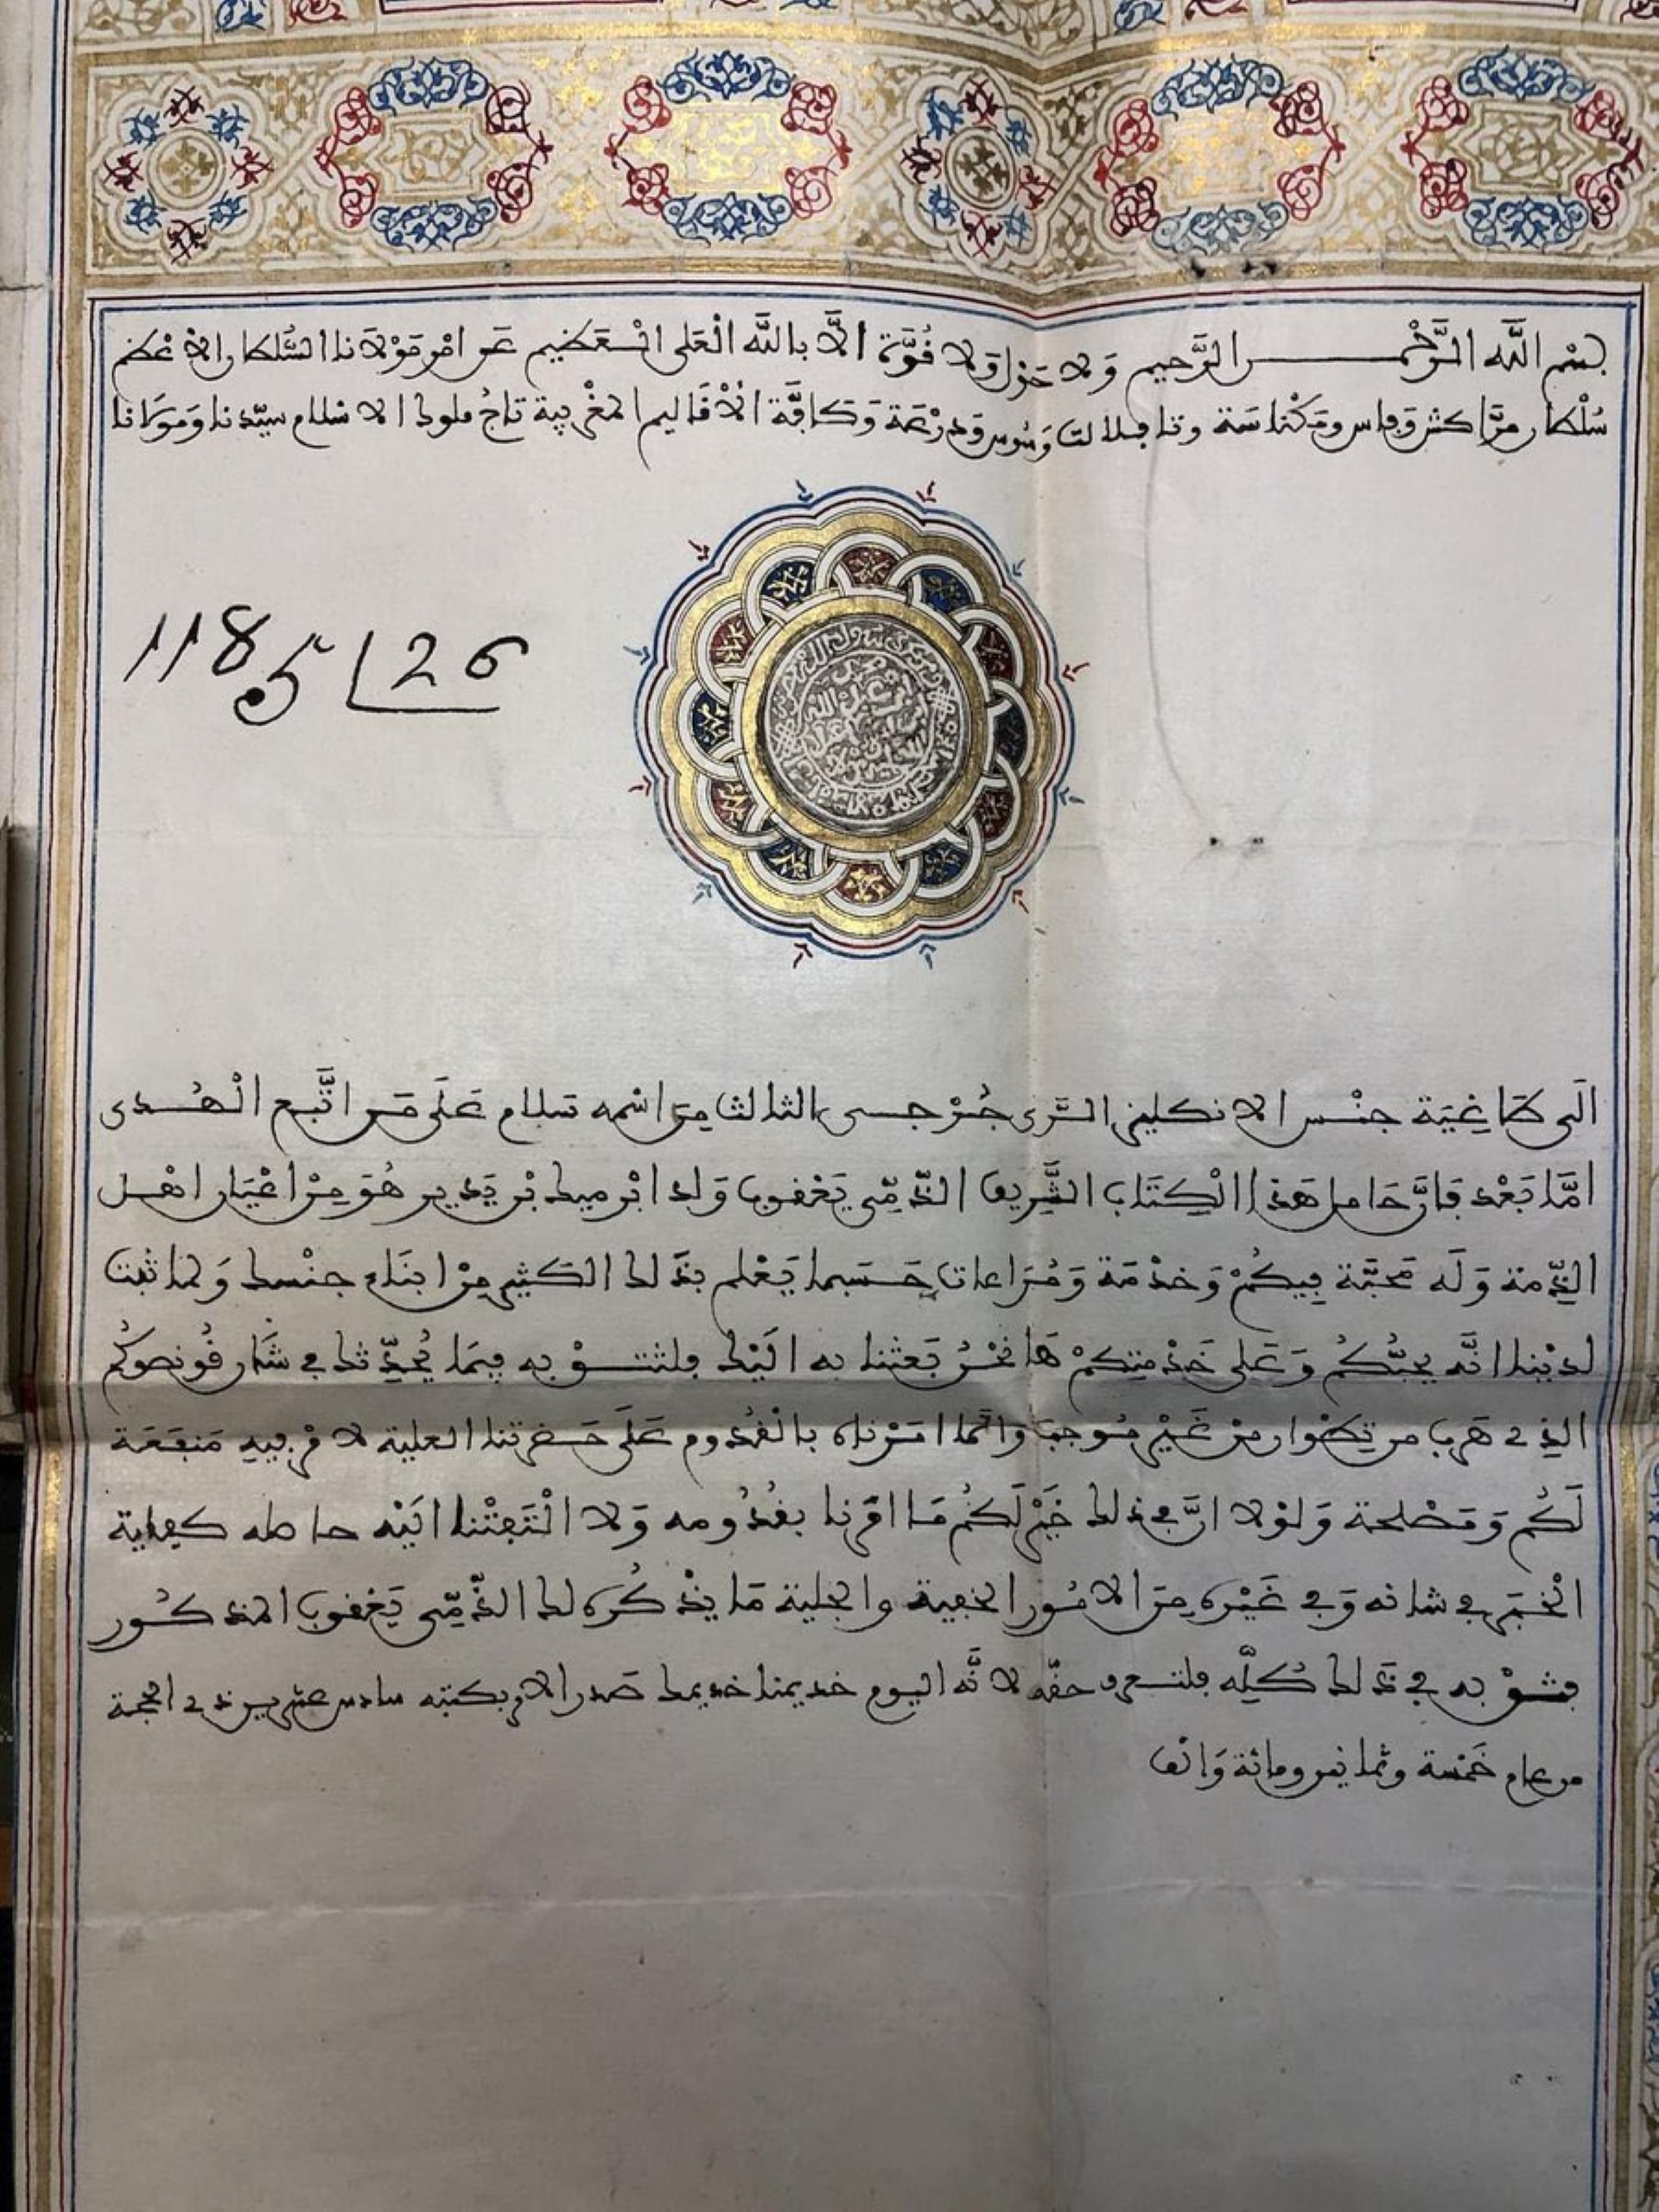 بسْم اللَّه الرَّحْمـن الرَّحيم وَلا حَوْل وَلا قُوَّة الَّا باللَّه الْعَلى الْعَظيم عَن امْر مَوْلَانا السُّلطان الاعْظم
سُلْطان مرَّاكش وَفاس ومَكْناسَة وتافيلالت وَسُوس وَدرْعَة وَكافَّة الْأَقَاليم المغْربية تاجُ ملوك الاسْلام سيّدنا وَمَوْلانا
محمد بن عبد الله
1185 26
الَى طَاغِيَة جنْس الانكليز الرَّى جُرْجـس الثالث مِن اسْمه سَلام عَلَى مَن اتَّبع الْهُـدى
امَّا بَعْد فَانَّ حَامل هَذا الْكِتَاب الشَّريف الذّمِّى يَعْقوب وَلد ابْرهيط بْن يَديدير هُوَ مِنْ اعْيَان اهْـل
الذِّمة وَلَه مَحبَّة فِيكُمْ وَخدْمَة وَمُرَاعات حَسَبما يَعْلم بذَلك الكَثير مِنْ ابنَاء جنْسك وَلمَا ثبت
لدَيْنا انَّه يحبُّكُم وَعَلى خَدْمتِكمْ هَا نَحْنُ بَعثْنا به الَيْك فلتثـقْ به فيمَا يُحدِّثك في شَأن قُونصوكُم
الذي هَرب من تِطْوان منْ غَيْر مُوجب وَانّما امَرْناه بالْقُدوم عَلَى حَضرتنا العلية لامْر فِيهِ مَنفعَة
لَكُم وَمَصْلحة وَلوْلا انَّ في ذلك خَيْر لَكُم مَا امَرنا بقُدُومه وَلا الْتَفتْنا الَيْه حاطه كـفاية
الْخبَر في شانه وَفي غَيْره مِنَ الامُور الخفية والجلية مَا يذْكُره لك الذّمِّى يَعْقوب المذكُـور
فثـقْ به في ذَلك كُلِّه فلتـعرف حقّه لانَّه اليوم خديمنا خديمك صَدر الامر بكتبه سادس عشرين ذي الحجة
من عام خَمْسة وثمانين ومائة وَالْف